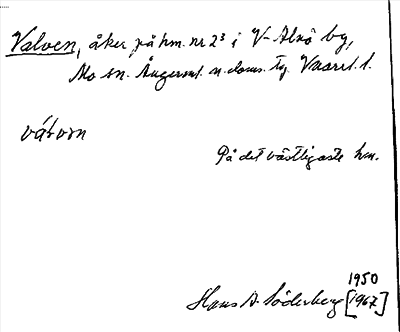 Valven, åker på hm. nr 2³ i V-Alnö by,
Mo sn. Ångerml. n. doms. tg. Vnorrl. l.
På det västligaste hm.
1950
Hans A. Söderberg [1967]